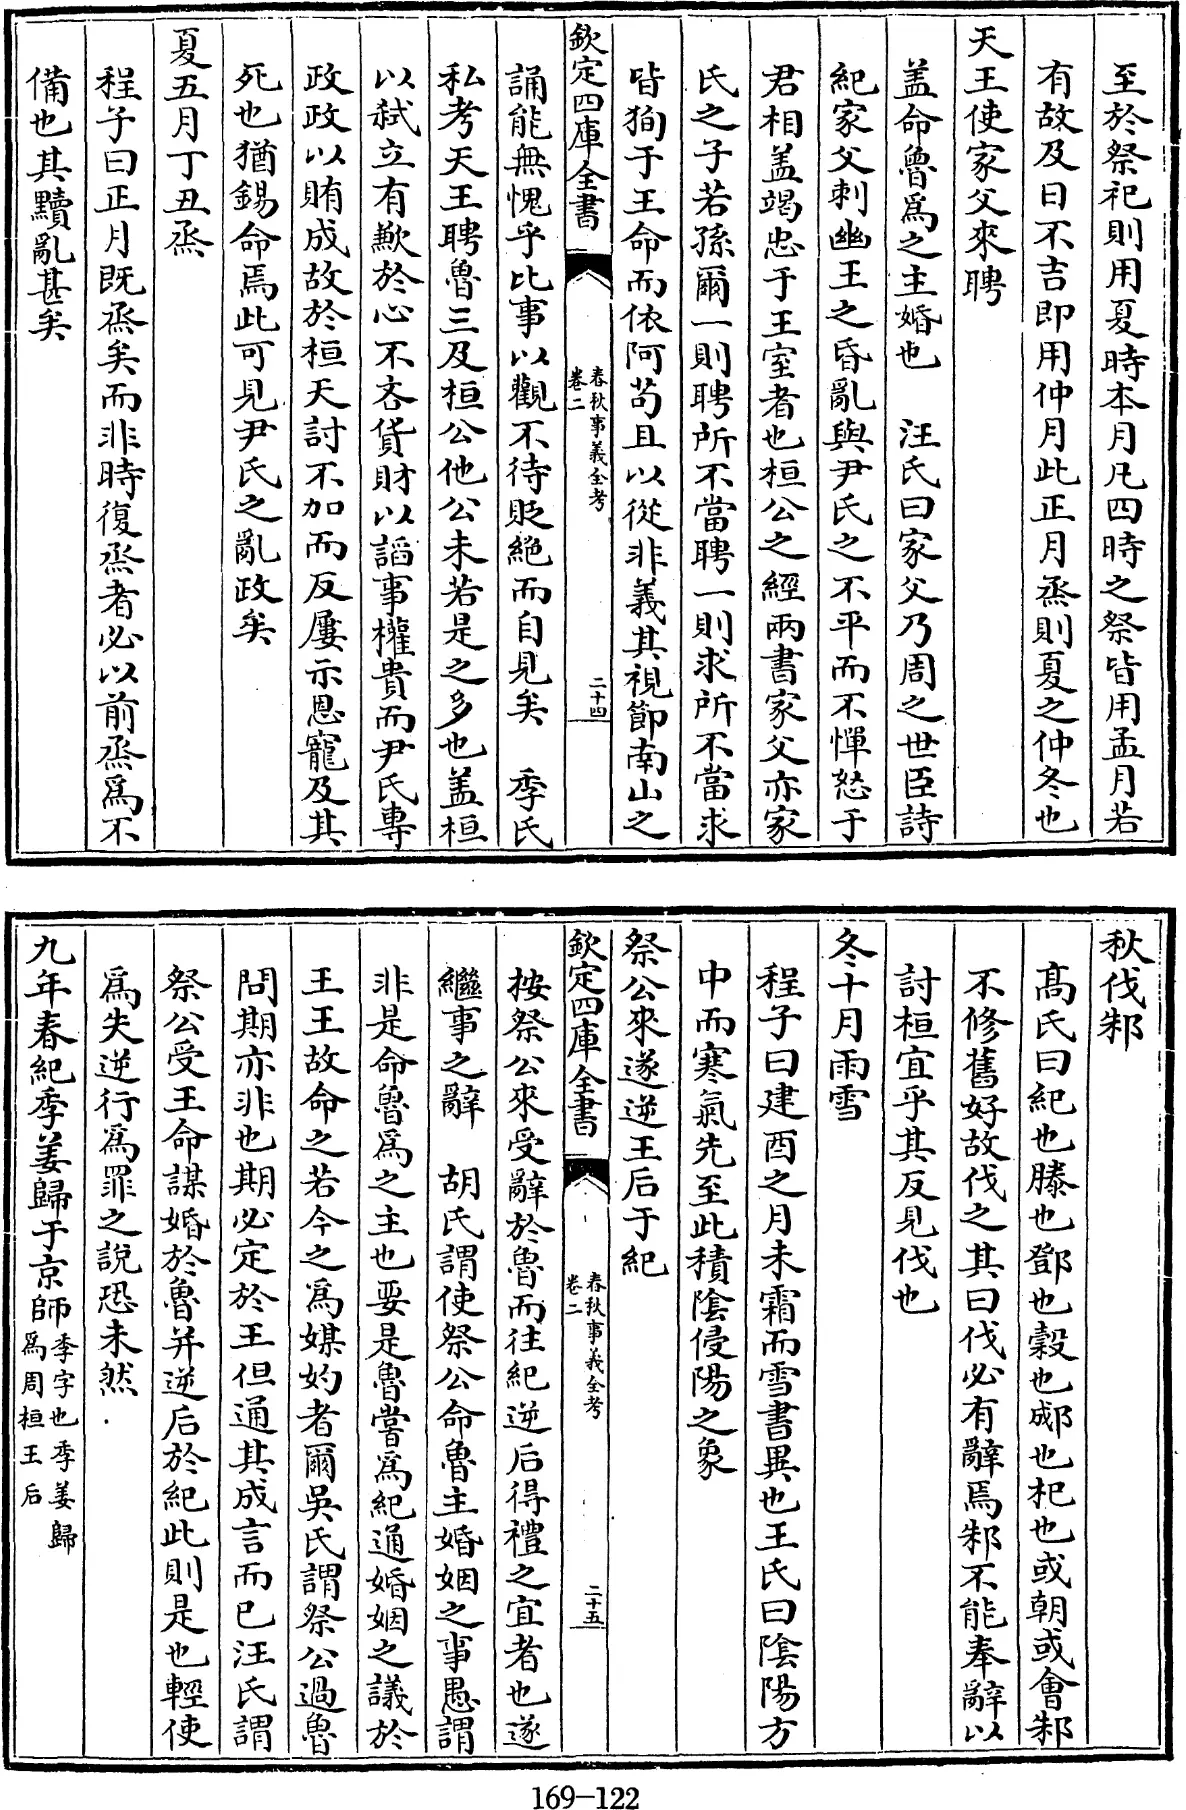 至於祭祀則用夏時本月凡四時之祭皆用孟月若
有故及日不吉即用仲月此正月烝則夏之仲冬也
天王使家父來聘
盖命魯爲之主婚也　汪氏曰家父乃周之世臣詩
紀家父刺幽王之昏亂與尹氏之不平而不憚怒于
君相盖竭忠于王室者也桓公之經兩書家父亦家
氏之子若孫爾一則聘所不當聘一則求所不當求
皆狥于王命而依阿苟且以從非義其視節南山之
欽定四庫全書
春秋事義全考
卷二
二十四
誦能無愧乎比事以觀不待貶絕而自見矣　季氏
私考天王聘魯三及桓公他公未若是之多也盖桓
以弒立有歉於心不吝貨財以謟事權貴而尹氏專
政政以賄成故於桓天討不加而反屢示恩寵及其
死也猶錫命焉此可見尹氏之亂政矣
夏五月丁丑烝
程子曰正月既烝矣而非時復烝者必以前烝爲不
備也其黷亂甚矣
秋伐邾
高氏曰紀也滕也鄧也穀也郕也杞也或朝或會邾
不修舊好故伐之其曰伐必有辭焉邾不能奉辭以
討桓宜乎其反見伐也
冬十月雨雪
程子曰建酉之月未霜而雪書異也王氏曰陰陽方
中而寒氣先至此積陰侵陽之象
祭公來遂逆王后于紀
欽定四庫全書
春秋事義全考
卷二
二十五
按祭公來受辭於魯而往紀逆后得禮之宜者也遂
繼事之辭　胡氏謂使祭公命魯主婚姻之事愚謂
非是命魯爲之主也要是魯嘗爲紀通婚姻之議於
王王故命之若今之爲媒妁者爾吳氏謂祭公過魯
問期亦非也期必定於王但通其成言而已汪氏謂
祭公受王命謀婚於魯并逆后於紀此則是也輕使
爲失逆行爲罪之說恐未然
九年春紀季姜歸于京師季字也季姜歸
爲周桓王后
169-122